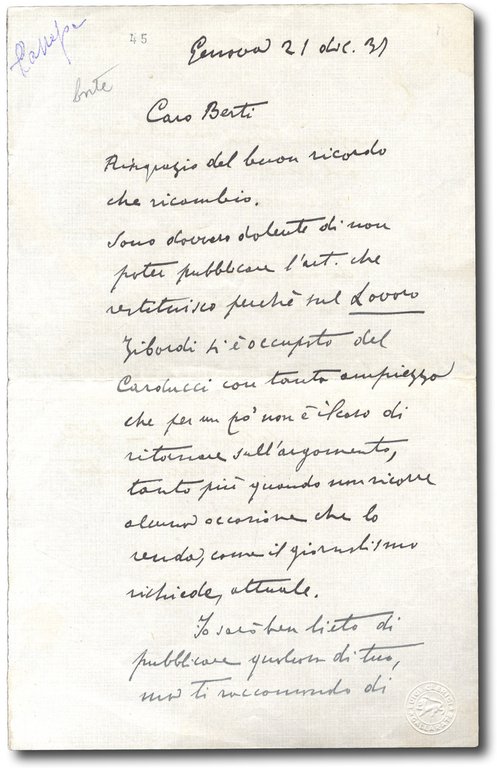 Canepa
45
Genova 21 dic. 31
Caro Berti
Ringrazio del buon ricordo
che ricambio.
Sono davvero dolente di non
poter pubblicare l'art. che
restituisco perchè sul Lavoro
Zibordi si è occupato del
Carducci con tanta ampiezza
che per un po' non è il caso di
ritornare sull'argomento,
tanto più quando non ricorre
alcuna occasione che lo
renda, come il giornalismo
richiede, attuale.
Io sarò ben lieto di
pubblicare qualcosa di tuo,
ma ti raccomando di